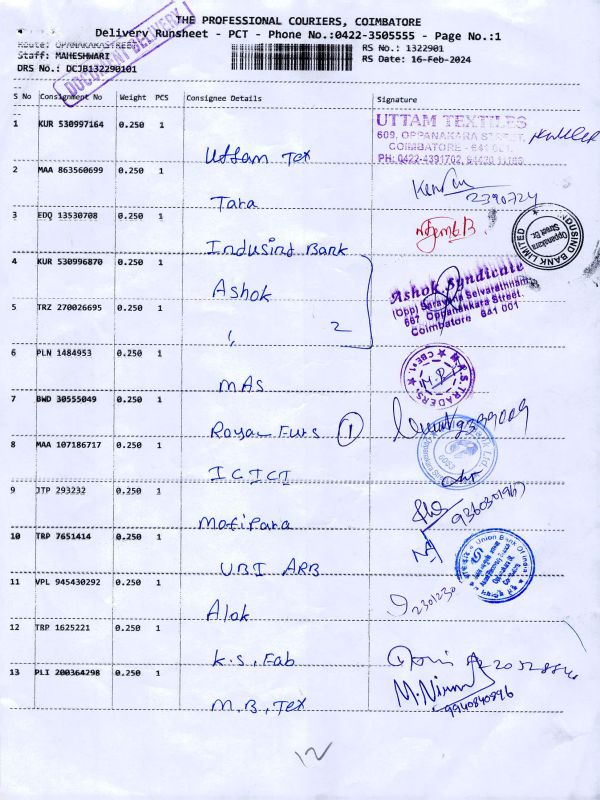 THE PROFESSIONAL COURIERS, COIMBATORE
Delivery Runsheet - PCT - Phone No.:0422-3505555 - Page No.:1
DOCUMENT DELIVERY
Route: OPPANAKARASTREET
RS No.: 1322901
Staff: MAHESHWARI
RS Date: 16-Feb-2024
DRS No.: DCJB132290101
S No Consignment No Weight PCS Consignee Details Signature
1 KUR 530997164 0.250 1 Uttam Tex
UTTAM TEXTILES
609, OPPANAKARA STREET,
COIMBATORE - 641 001.
2 MAA 863560699 0.250 1 Tara 2390724
3 EDQ 13530708 0.250 1 Indusind Bank
INDUSIND BANK LIMITED
4 KUR 530996870 0.250 1 Ashok
Ashok Syndicate
(Opp) Saravana Selvarathinam
667 Oppanakkara Street,
Coimbatore 641 001
5 TRZ 270026695 0.250 1 ,, 2
6 PLN 1484953 0.250 1 MAs
TRADERS
7 BWD 30555049 0.250 1 Royal Furs 1
8 MAA 107186717 0.250 1 ICICI
9 JTP 293232 0.250 1 Motipara
10 TRP 7651414 0.250 1 UBI ARB
Union Bank Of India
11 VPL 945430292 0.250 1 Alok 2301230
12 TRP 1625221 0.250 1 K.S. Fab
13 PLI 200364298 0.250 1 M.B. Tex
M.Nirm
9940840896
12